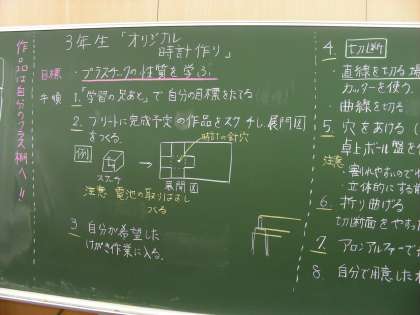 作品は自分のクラス棚へ!!
3年生「オリジナル
時計作り」
目標 ・プラスチックの性質を学ぶ
手順 1.「学習の文あと」で自分の目標をたてる
2. プリントに完成予定の作品をスケッチし、展開図
をつくる。
時計の針穴
例
スケッチ
展開図
注意 電池の取りはずし
つくる
3. 自分が希望した
けがき作業に入る。
4. 切断
・直線を切る場
カッターを使う。
・曲線を切る
5. 穴をあける
卓上ボール盤を
注意
・割れやすいので
・立体的にする前
6. 折り曲げる
切断面をやす
7. アロンアルファーで
8. 自分で用意した